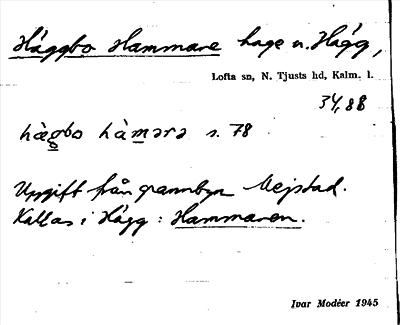 Häggbo Hammare hage u. Hägg,
Lofta sn, N. Tjusts hd, Kalm. l.
34,88
hägbo hàmara s. 78
Uppgift från grannbyn Vejstad.
Kallas i Hägg: Hammaren.
Ivar Modéer 1945